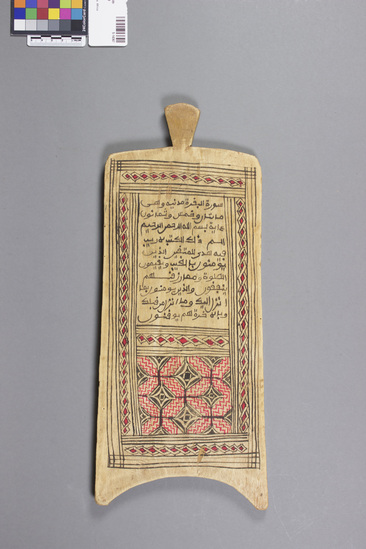 سورة البقرة مدنية وهى
مايتان وخمس وثمانون
ءاية بسم الله الرحمن الرحيم
الم ذلك الكتب لا ريب
فيه هدى للمتقين الذين
يومنون بالغيب ويقيمون
الصلوة ومما رزقنهم
ينفقون والذين يومنون بما
انزل اليك وما انزل من قبلك
وبالاخرة هم يوقنون